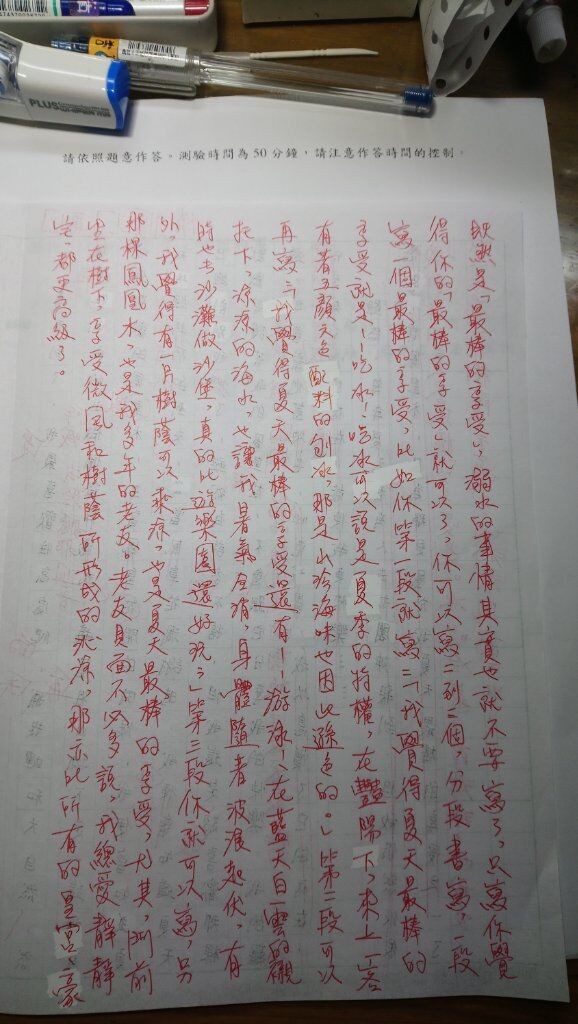 PLUS
請依照題意作答。測驗時間為50分鐘，請注意作答時間的控制。
既然是「最棒的享受」，溺水的事情其實也就不要寫了，只寫你覺
得你的「最棒的享受」就可以了，你可以寫二到三個，分段書寫，一段
寫一個最棒的享受，比如你第一段就寫：「我覺得夏天最棒的
享受就是——吃冰！吃冰可以說是夏季的特權，在豔陽下，來上一客
有著五顏六色配料的刨冰，那是山珍海味也因此遜色的。」第二段可以
再寫：「我覺得夏天最棒的享受還有——游泳，在藍天白雲的襯
托下，涼涼的海水，也讓我暑氣全消，身體隨著波浪起伏，有
時也去沙灘做沙堡，真的比遊樂園還好玩。」第三段你就可以寫，另
外，我覺得有一片樹蔭可以乘涼，也是夏天最棒的享受，尤其，門前
那棵鳳凰木，也是我多年的老友。老友見面不必多說，我總愛靜靜
坐在樹下，享受微風和樹蔭所形成的沁涼，那亦比所有的皇宮、豪
宅，都更高級了。